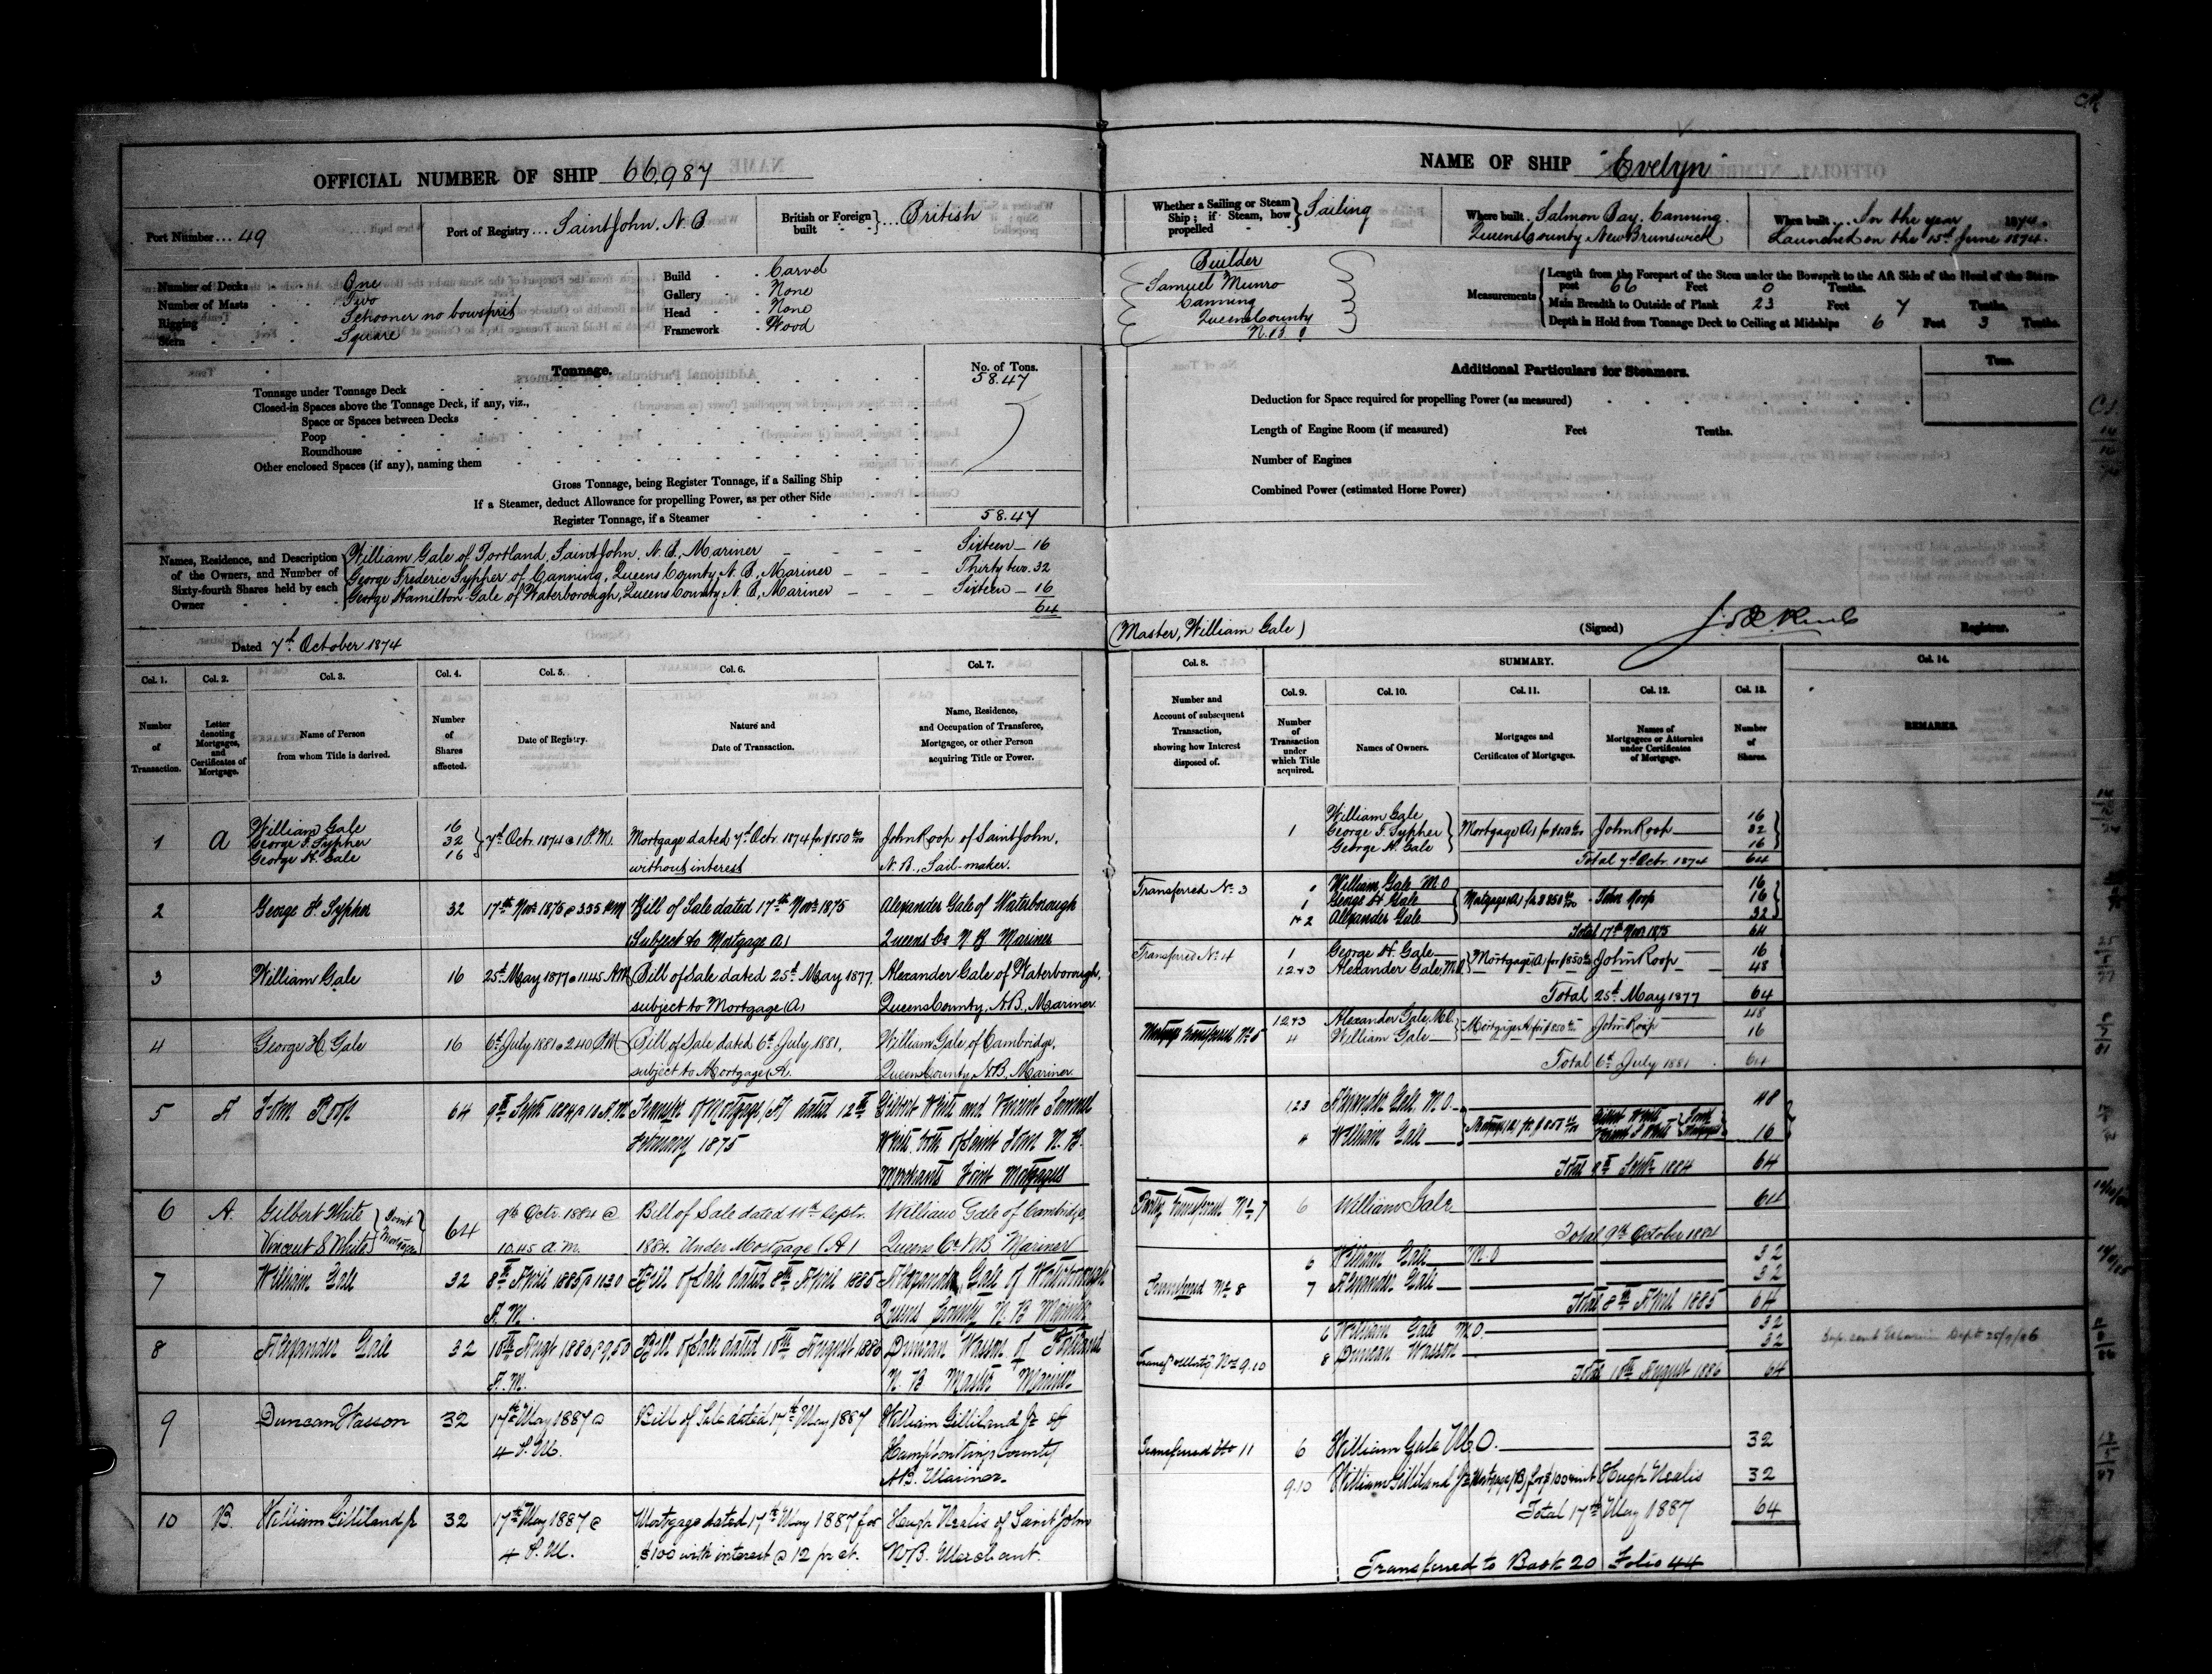 OFFICIAL NUMBER OF SHIP 66,987
Port Number ... 49
Port of Registry ... Saint John. N. B
British or Foreign built } ... British
Number of Decks One
Number of Masts Two
Rigging Schooner no bowsprit
Stern Square
Build Carvel
Gallery None
Head None
Framework Wood
Tonnage.
No. of Tons.
Tonnage under Tonnage Deck 58.47
Closed-in Spaces above the Tonnage Deck, if any, viz.,
Space or Spaces between Decks
Poop
Roundhouse
Other enclosed Spaces (if any), naming them
Gross Tonnage, being Register Tonnage, if a Sailing Ship
If a Steamer, deduct Allowance for propelling Power, as per other Side
Register Tonnage, if a Steamer 58.47
Names, Residence, and Description of the Owners, and Number of Sixty-fourth Shares held by each Owner
William Gale of Portland, Saint John, N. B., Mariner Sixteen 16
George Frederic Sypher of Canning, Queens County, N. B., Mariner Thirty two. 32
George Hamilton Gale of Waterborough, Queens County, N. B, Mariner Sixteen 16
64
Dated 7th October 1874
NAME OF SHIP "Evelyn"
Whether a Sailing or Steam Ship; if Steam, how propelled } Sailing
Where built. Salmon Bay, Canning.
Queens County New Brunswick
When built ... In the year 1874.
Launched on the 15th June 1874.
Builder
Samuel Munro
Canning
Queens County
N. B.
Measurements
Length from the Forepart of the Stem under the Bowsprit to the Aft Side of the Head of the Stern-
post 66 Feet 0 Tenths.
Main Breadth to Outside of Plank 23 Feet 7 Tenths.
Depth in Hold from Tonnage Deck to Ceiling at Midships 6 Feet 3 Tenths.
Additional Particulars for Steamers.
Tons.
Deduction for Space required for propelling Power (as measured)
Length of Engine Room (if measured) Feet Tenths.
Number of Engines
Combined Power (estimated Horse Power)
(Master, William Gale)
(Signed) Registrar.
Col. 1. Col. 2. Col. 3. Col. 4. Col. 5. Col. 6. Col. 7.
Number of Transaction.
Letter denoting Mortgages, and Certificates of Mortgage.
Name of Person from whom Title is derived.
Number of Shares affected.
Date of Registry.
Nature and Date of Transaction.
Name, Residence, and Occupation of Transferee, Mortgagee, or other Person acquiring Title or Power.
1 A William Gale 16
George F. Sypher 32
George H. Gale 16
7th Octr. 1874 @ 1 P.M.
Mortgage dated 7th Octr. 1874 for $850
without interest
John Roop of Saint John,
N. B., Sail-maker.
2 George F. Sypher 32 17th Novr 1875 @ 3.35 PM
Bill of Sale dated 17th Novr 1875
(Subject to Mortgage A)
Alexander Gale of Waterborough
Queens Co N B Mariner
3 William Gale 16 25th May 1877 @ 11.45 AM
Bill of Sale dated 25th May 1877.
subject to Mortgage (A)
Alexander Gale of Waterborough,
Queens County, N.B., Mariner
4 George H. Gale 16 6th July 1881 @ 2.40 P.M
Bill of Sale dated 6th July 1881,
subject to Mortgage (A.
William Gale of Cambridge,
Queens County, N.B., Mariner
5 A John Roop 64 9th Septr 1884 @ 10 A.M.
Transfer of Mortgage (A) dated 12th
February 1875
Gilbert White and Vincent Samuel
White both of Saint John N. B.
Merchants Joint Mortgagees
6 A. Gilbert White
Vincent S White } Joint Mortgagees 64
9th Octr. 1884 @
10.45 a.m.
Bill of Sale dated 11th Septr.
1884. Under Mortgage (A)
William Gale of Cambridge,
Queens Co. NB Mariner
7 William Gale 32 8th April 1885 @ 11.30
A.M.
Bill of Sale dated 8th April 1885
Alexander Gale of Waterborough
Queens County N. B Mariner
8 Alexander Gale 32 10th Augt 1886 @ 9,50
A.M.
Bill of Sale dated 10th August 1886
Duncan Wasson of Portland
N. B Master Mariner
9 Duncan Wasson 32 17th May 1887 @
4 P.M.
Bill of Sale dated 17th May 1887
William Gilliland Jr of
Hampton Kings County
N.B. Mariner.
10 B. William Gilliland Jr 32 17th May 1887 @
4 P.M.
Mortgage dated 17th May 1887 for
$100 with interest @ 12 pr ct.
Hugh Nealis of Saint John
N.B. Merchant.
Col. 8. SUMMARY. Col. 14.
Col. 9. Col. 10. Col. 11. Col. 12. Col. 13.
Number and Account of subsequent Transaction, showing how Interest disposed of.
Number of Transaction under which Title acquired.
Names of Owners.
Mortgages and Certificates of Mortgages.
Names of Mortgagees or Attornies under Certificates of Mortgage.
Number of Shares.
REMARKS.
1 William Gale 16
George F. Sypher Mortgage (A) for $850 John Roop 32
George H. Gale 16
Total 7th Octr. 1874 64
Transferred No. 3
William Gale M.O 16
1 George H Gale Mortgage (A) for $850 John Roop 16
1 & 2 Alexander Gale 32
Total 17th Novr 1875 64
Transferred No. 4
1 George H. Gale 16
1.2 & 3 Alexander Gale, M.O. Mortgage (A) for $850 John Roop 48
Total 25th May 1877 64
Mortgage Transferred No 5
1.2 & 3 Alexander Gale, M.O. 48
4 William Gale Mortgage A for $850 John Roop 16
Total 6th July 1881 64
1,2,3 Alexander Gale M.O. 48
4 William Gale Mortgage (A) for $850 Gilbert White Vincent S White } Joint Mortgagees 16
Total 9th Septr 1884 64
Partly transferred No. 7
6 William Gale 64
Total 9th October 1884
Transferred No 8
6 William Gale M.O 32
7 Alexander Gale 32
Total 8th April 1885 64
Transf & Mortg No 9.10
6 William Gale M.O. 32
8 Duncan Wasson 32
Total 10th August 1886 64
Transferred No 11
6 William Gale M.O. 32
9.10 William Gilliland Jr Mortgage (B) for $100 & int Hugh Nealis 32
Total 17th May 1887 64
Transferred to Book 20 Folio 44